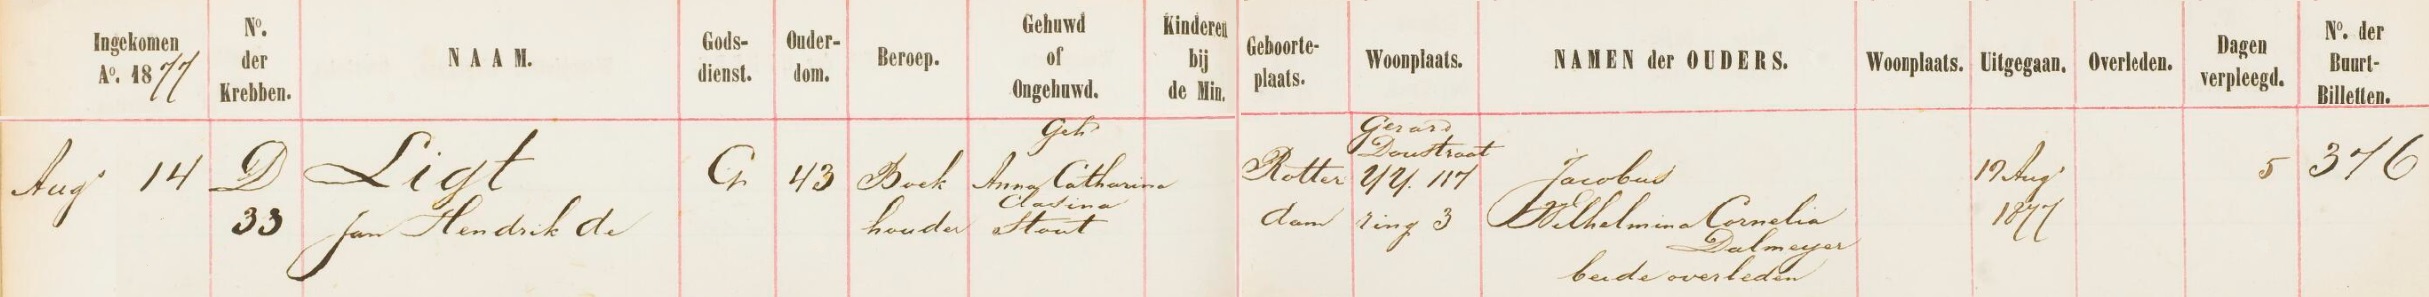 Ingekomen
Aº. 1877
Nº.
der
Krebben.
NAAM.
Gods-
dienst.
Ouder-
dom.
Beroep.
Gehuwd
of
Ongehuwd.
Kinderen
bij
de Min.
Geboorte-
plaats.
Woonplaats.
NAMEN der OUDERS.
Woonplaats.
Uitgegaan.
Overleden.
Dagen
verpleegd.
Nº. der
Buurt-
Billetten.
Aug 14
D
33
Ligt
Jan Hendrik de
43
Boek
houder
Geh
Anna Catharina
Clasina
Stout
Rotter
dam
Gerard
Doustraat
YY. 117
ring 3
Jacobus
Wilhelmina Cornelia
Dalmeyer
beide overleden
19 Aug
1877
5
376